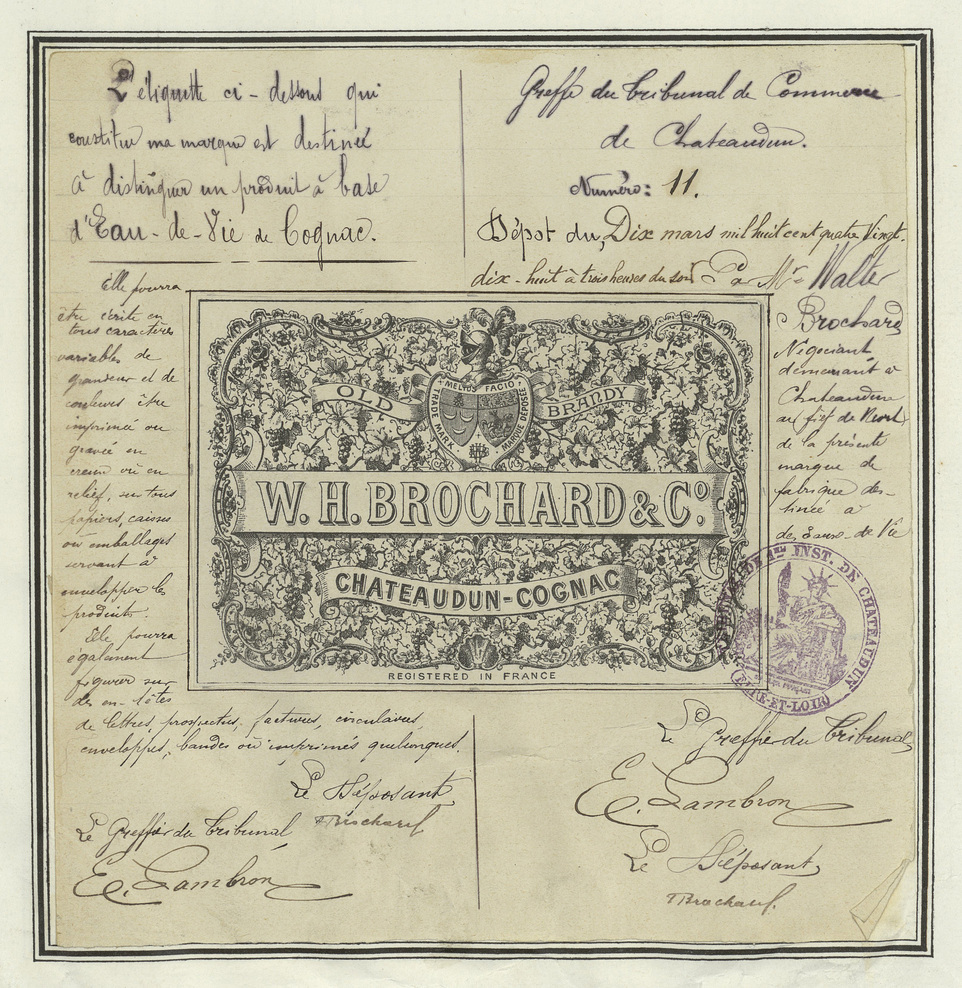 L'étiquette ci-dessous qui
constitue ma marque est destinée
à distinguer un produit à base
d'Eau-de-Vie de Cognac.
Elle pourra
être écrite en
tous caractères
variables de
grandeur et de
couleurs être
imprimée ou
gravée en
creux ou en
relief, sur tous
papiers, caisses
ou emballages
servant à
envelopper le
produit.
Elle pourra
également
figurer sur
des en-têtes
de lettres, prospectus, factures, circulaires,
enveloppes, bandes ou imprimés quelconques.
Le Déposant
Brochard
Le Greffier du Tribunal
E. Lambron
Greffe du Tribunal de Commerce
de Chateaudun.
Numéro: 11.
Dépôt du Dix mars mil huit cent quatre Vingt-
dix-huit à trois heures du soir Par Mr Walter
Brochard
Négociant
demeurant à
Chateaudun
de la présente
marque de
fabrique des-
tinée à
des Eaux-de-Vie
OLD
BRANDY
MELIUS FACIO
TRADE MARK
MARQUE DÉPOSÉE
W. H. BROCHARD & Co.
CHATEAUDUN-COGNAC
REGISTERED IN FRANCE
DE 1re INST. DE CHATEAUDUN
(EURE-ET-LOIR)
Le Greffier du Tribunal
E. Lambron
Le Déposant
Brochard.